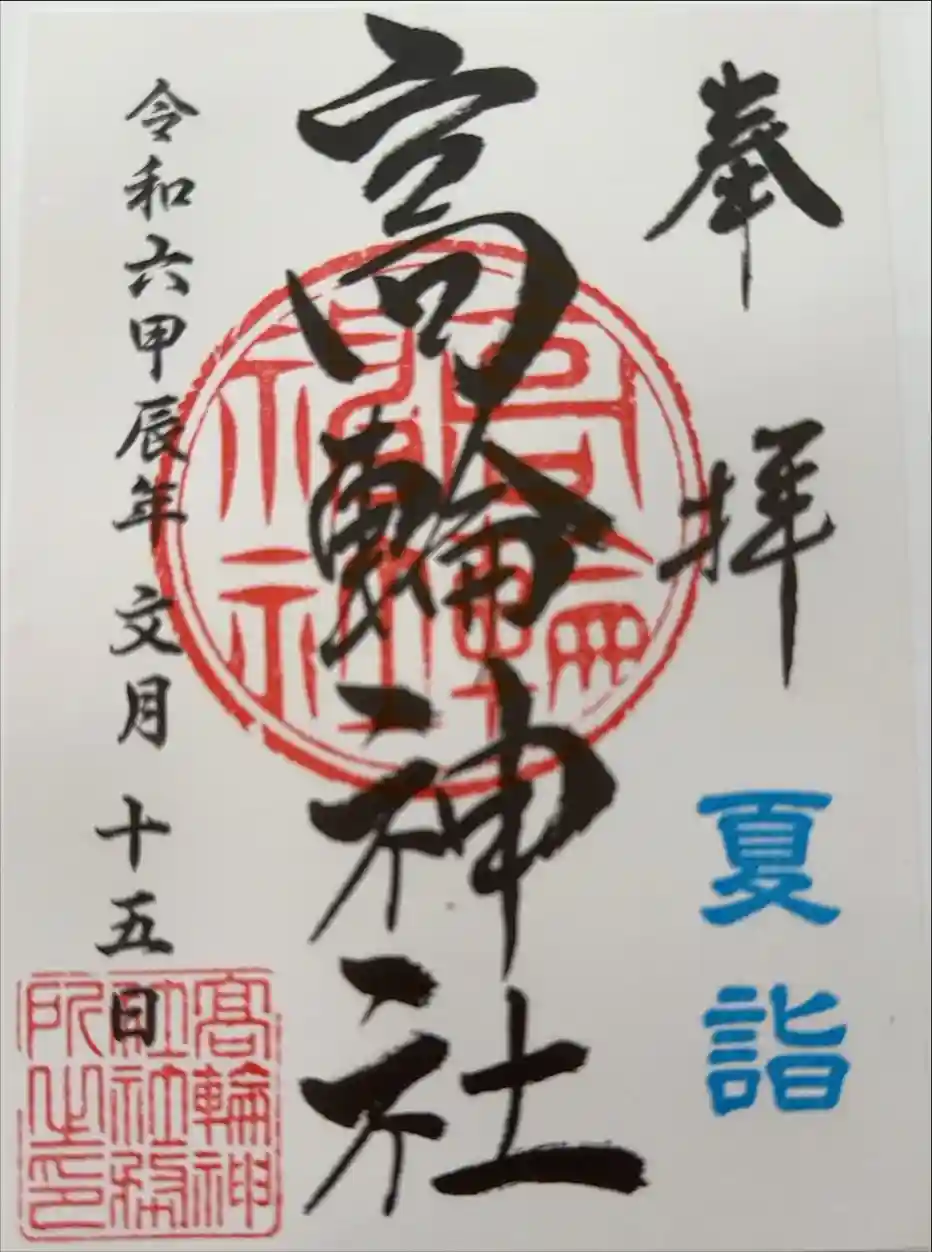 奉拝
夏詣
高輪神社
令和六甲辰年 文月 十五日
高輪神
社社務
所之印